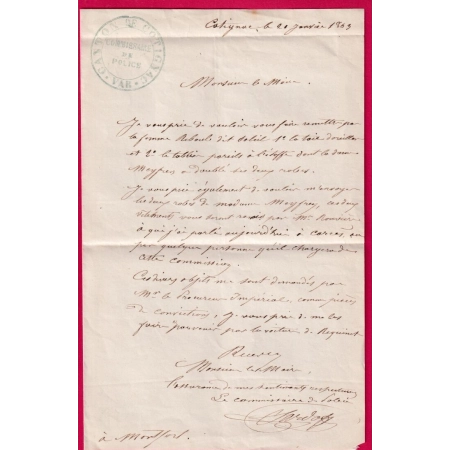 CANTON DE COTIGNAC
COMMISSAIRE
DE
POLICE
VAR
Cotignac, le 20 janvier 1863
Monsieur le Maire
Je vous prie de vouloir vous faire remettre par
la femme Reboul dit Soleil 1° la taie d'oreiller
et 2° le tablier pareils à l'étoffe dont la dame
Meyfren a doublé ses deux robes.
Je vous prie également de vouloir m'envoyer
les deux robes de madame Meyfren, ces deux
vêtements vous seront remis par Mr
à qui j'ai parlé aujourd'hui à Carces, ou
par quelque personne qu'il chargera de
cette commission.
Ces divers objets me sont demandés par
Mr le Procureur Impérial, comme pièces
de conviction, je vous prie de me les
faire parvenir par la voiture de
Recevez
Monsieur le Maire
l'assurance de mes sentiments respectueux
Le commissaire de Police
à Montfort.